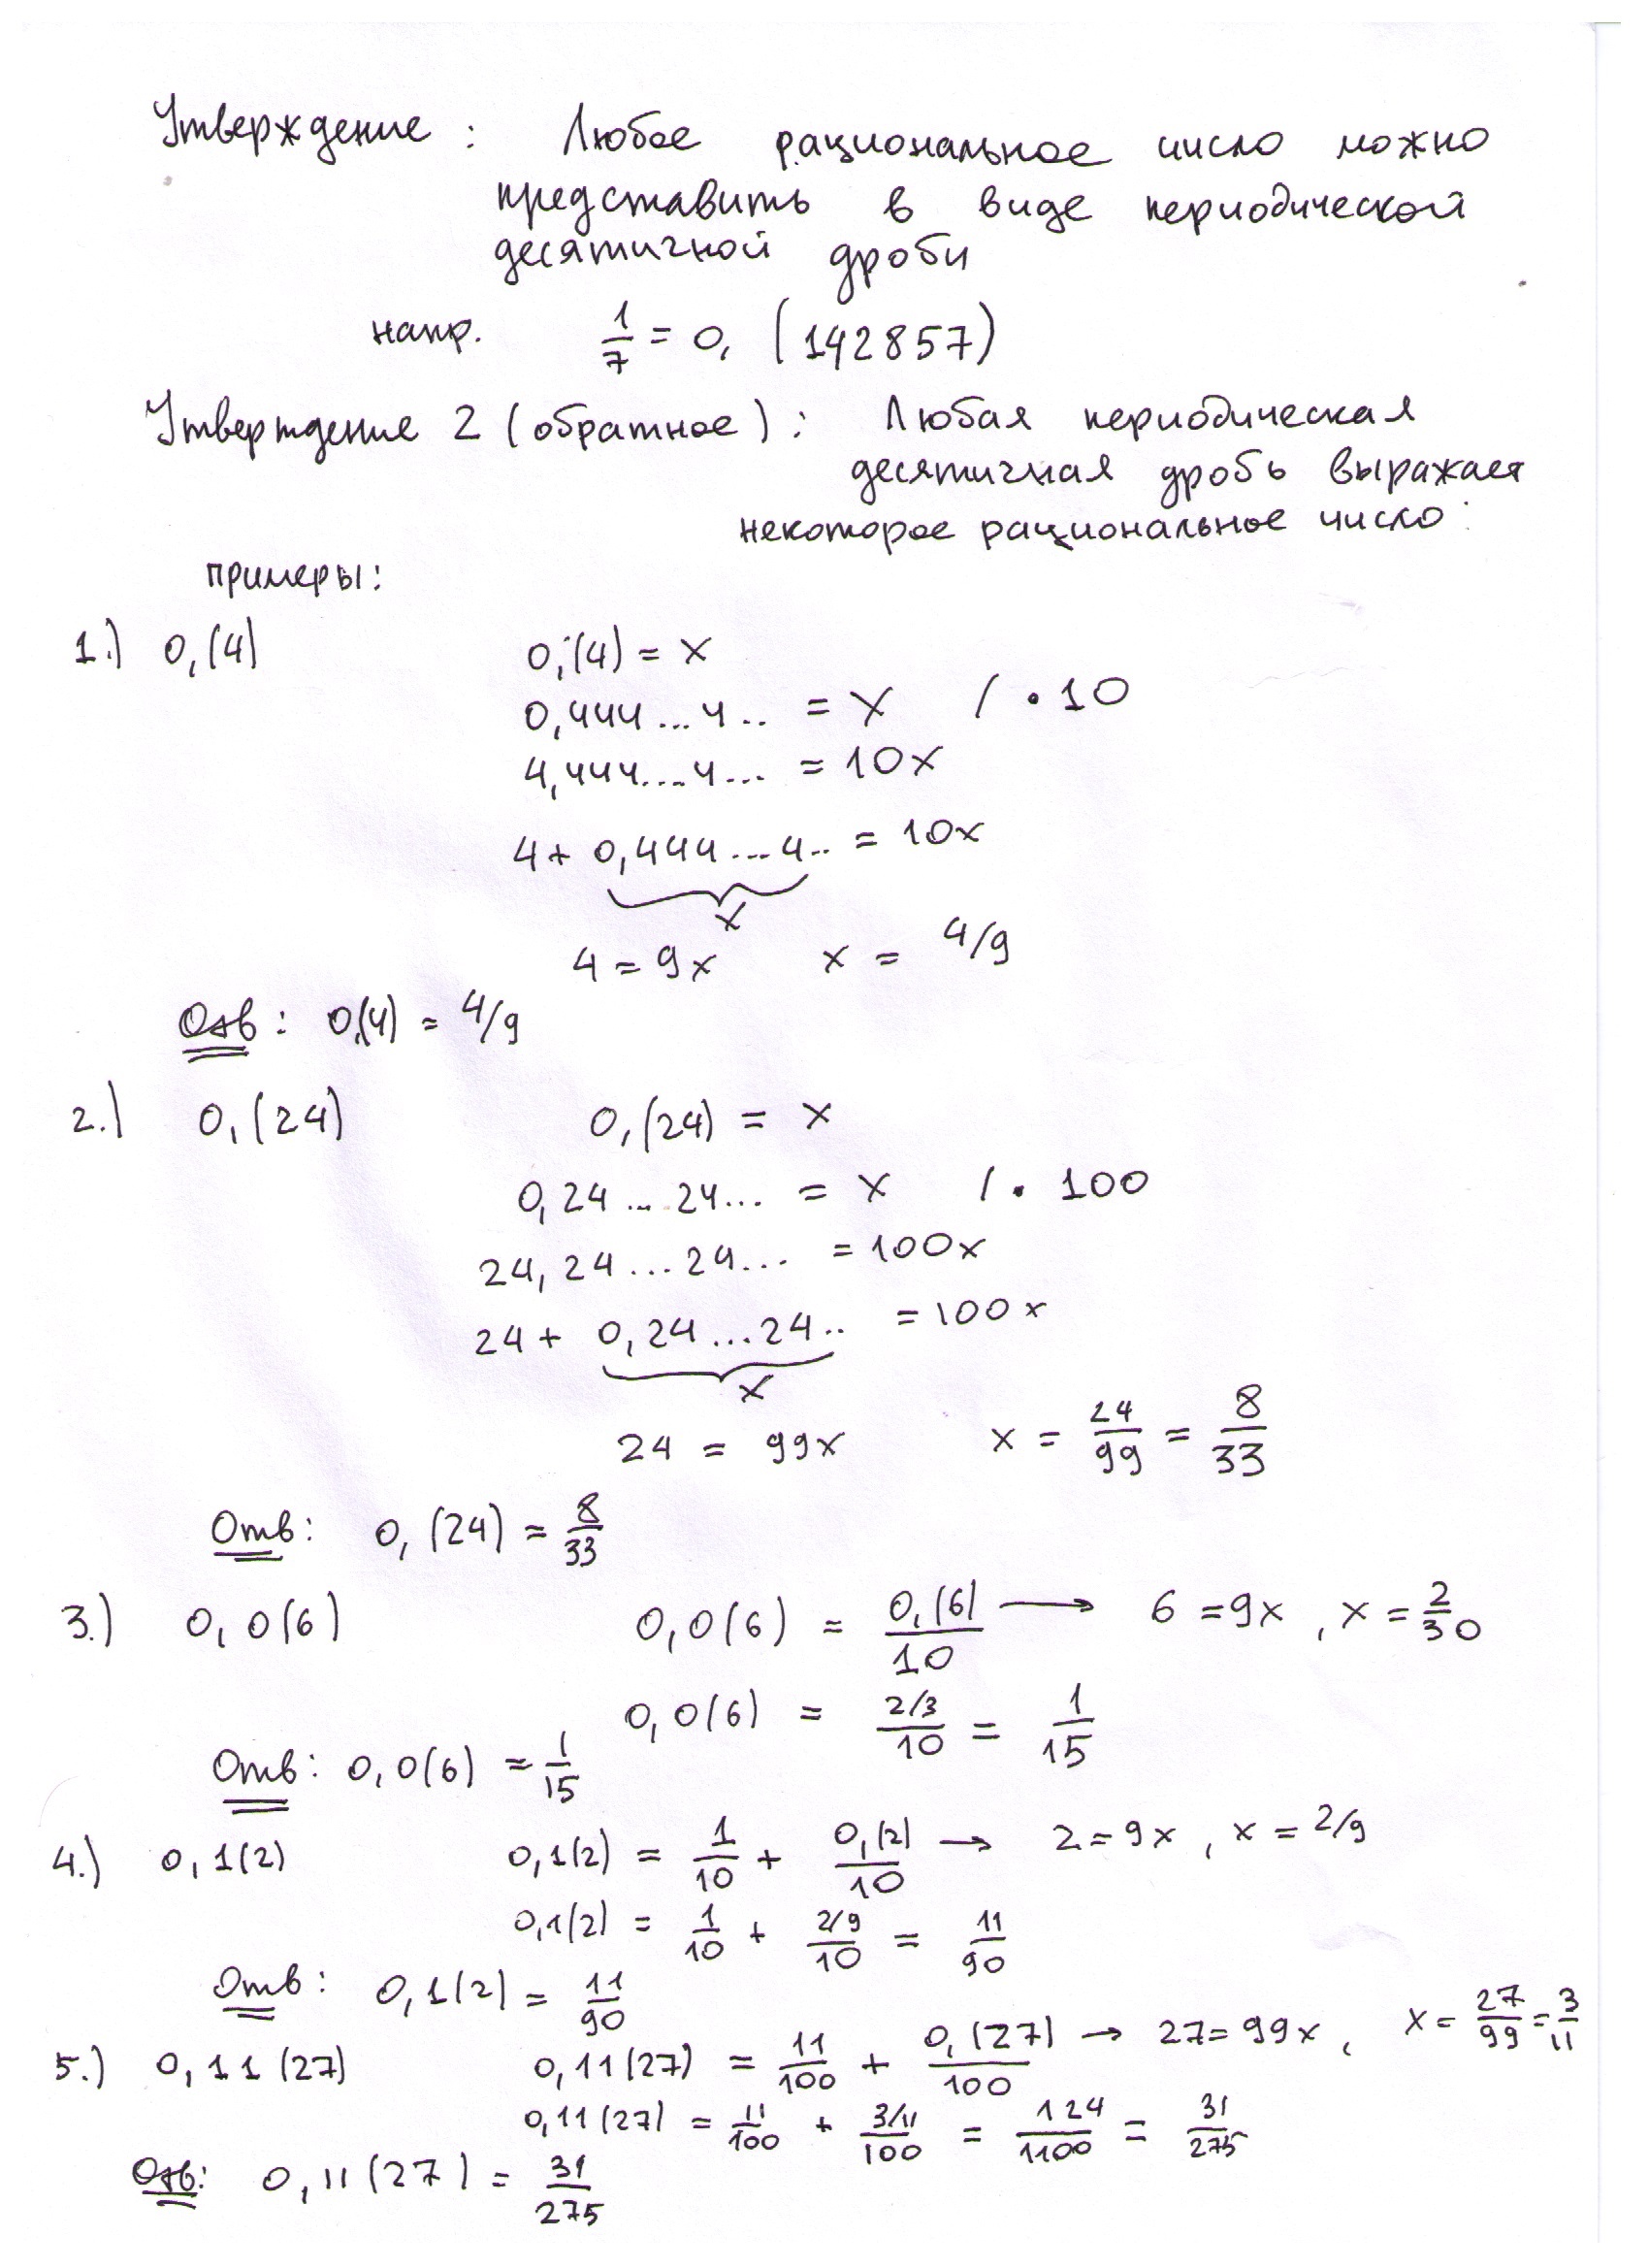 Утверждение : Любое рациональное число можно
представить в виде периодической
десятичной дроби
напр. 1/7 = 0, (142857)
Утверждение 2 (обратное) : Любая периодическая
десятичная дробь выражает
некоторое рациональное число :
примеры:
1.) 0,(4) 0,(4) = x
0,444...4.. = x / • 10
4,444...4... = 10x
4 + 0,444...4.. = 10x
x
4 = 9x x = 4/9
Отв : 0,(4) = 4/9
2.) 0,(24) 0,(24) = x
0,24...24... = x / • 100
24,24...24... = 100x
24 + 0,24...24.. = 100x
x
24 = 99x x = 24/99 = 8/33
Отв : 0,(24) = 8/33
3.) 0,0(6) 0,0(6) = 0,(6)/10 → 6 = 9x , x = 2/30
0,0(6) = 2/3/10 = 1/15
Отв : 0,0(6) = 1/15
4.) 0,1(2) 0,1(2) = 1/10 + 0,(2)/10 → 2 = 9x , x = 2/9
0,1(2) = 1/10 + 2/9/10 = 11/90
Отв : 0,1(2) = 11/90
5.) 0,11(27) 0,11(27) = 11/100 + 0,(27)/100 → 27 = 99x , x = 27/99 = 3/11
0,11(27) = 11/100 + 3/11/100 = 124/1100 = 31/275
Отв: 0,11(27) = 31/275